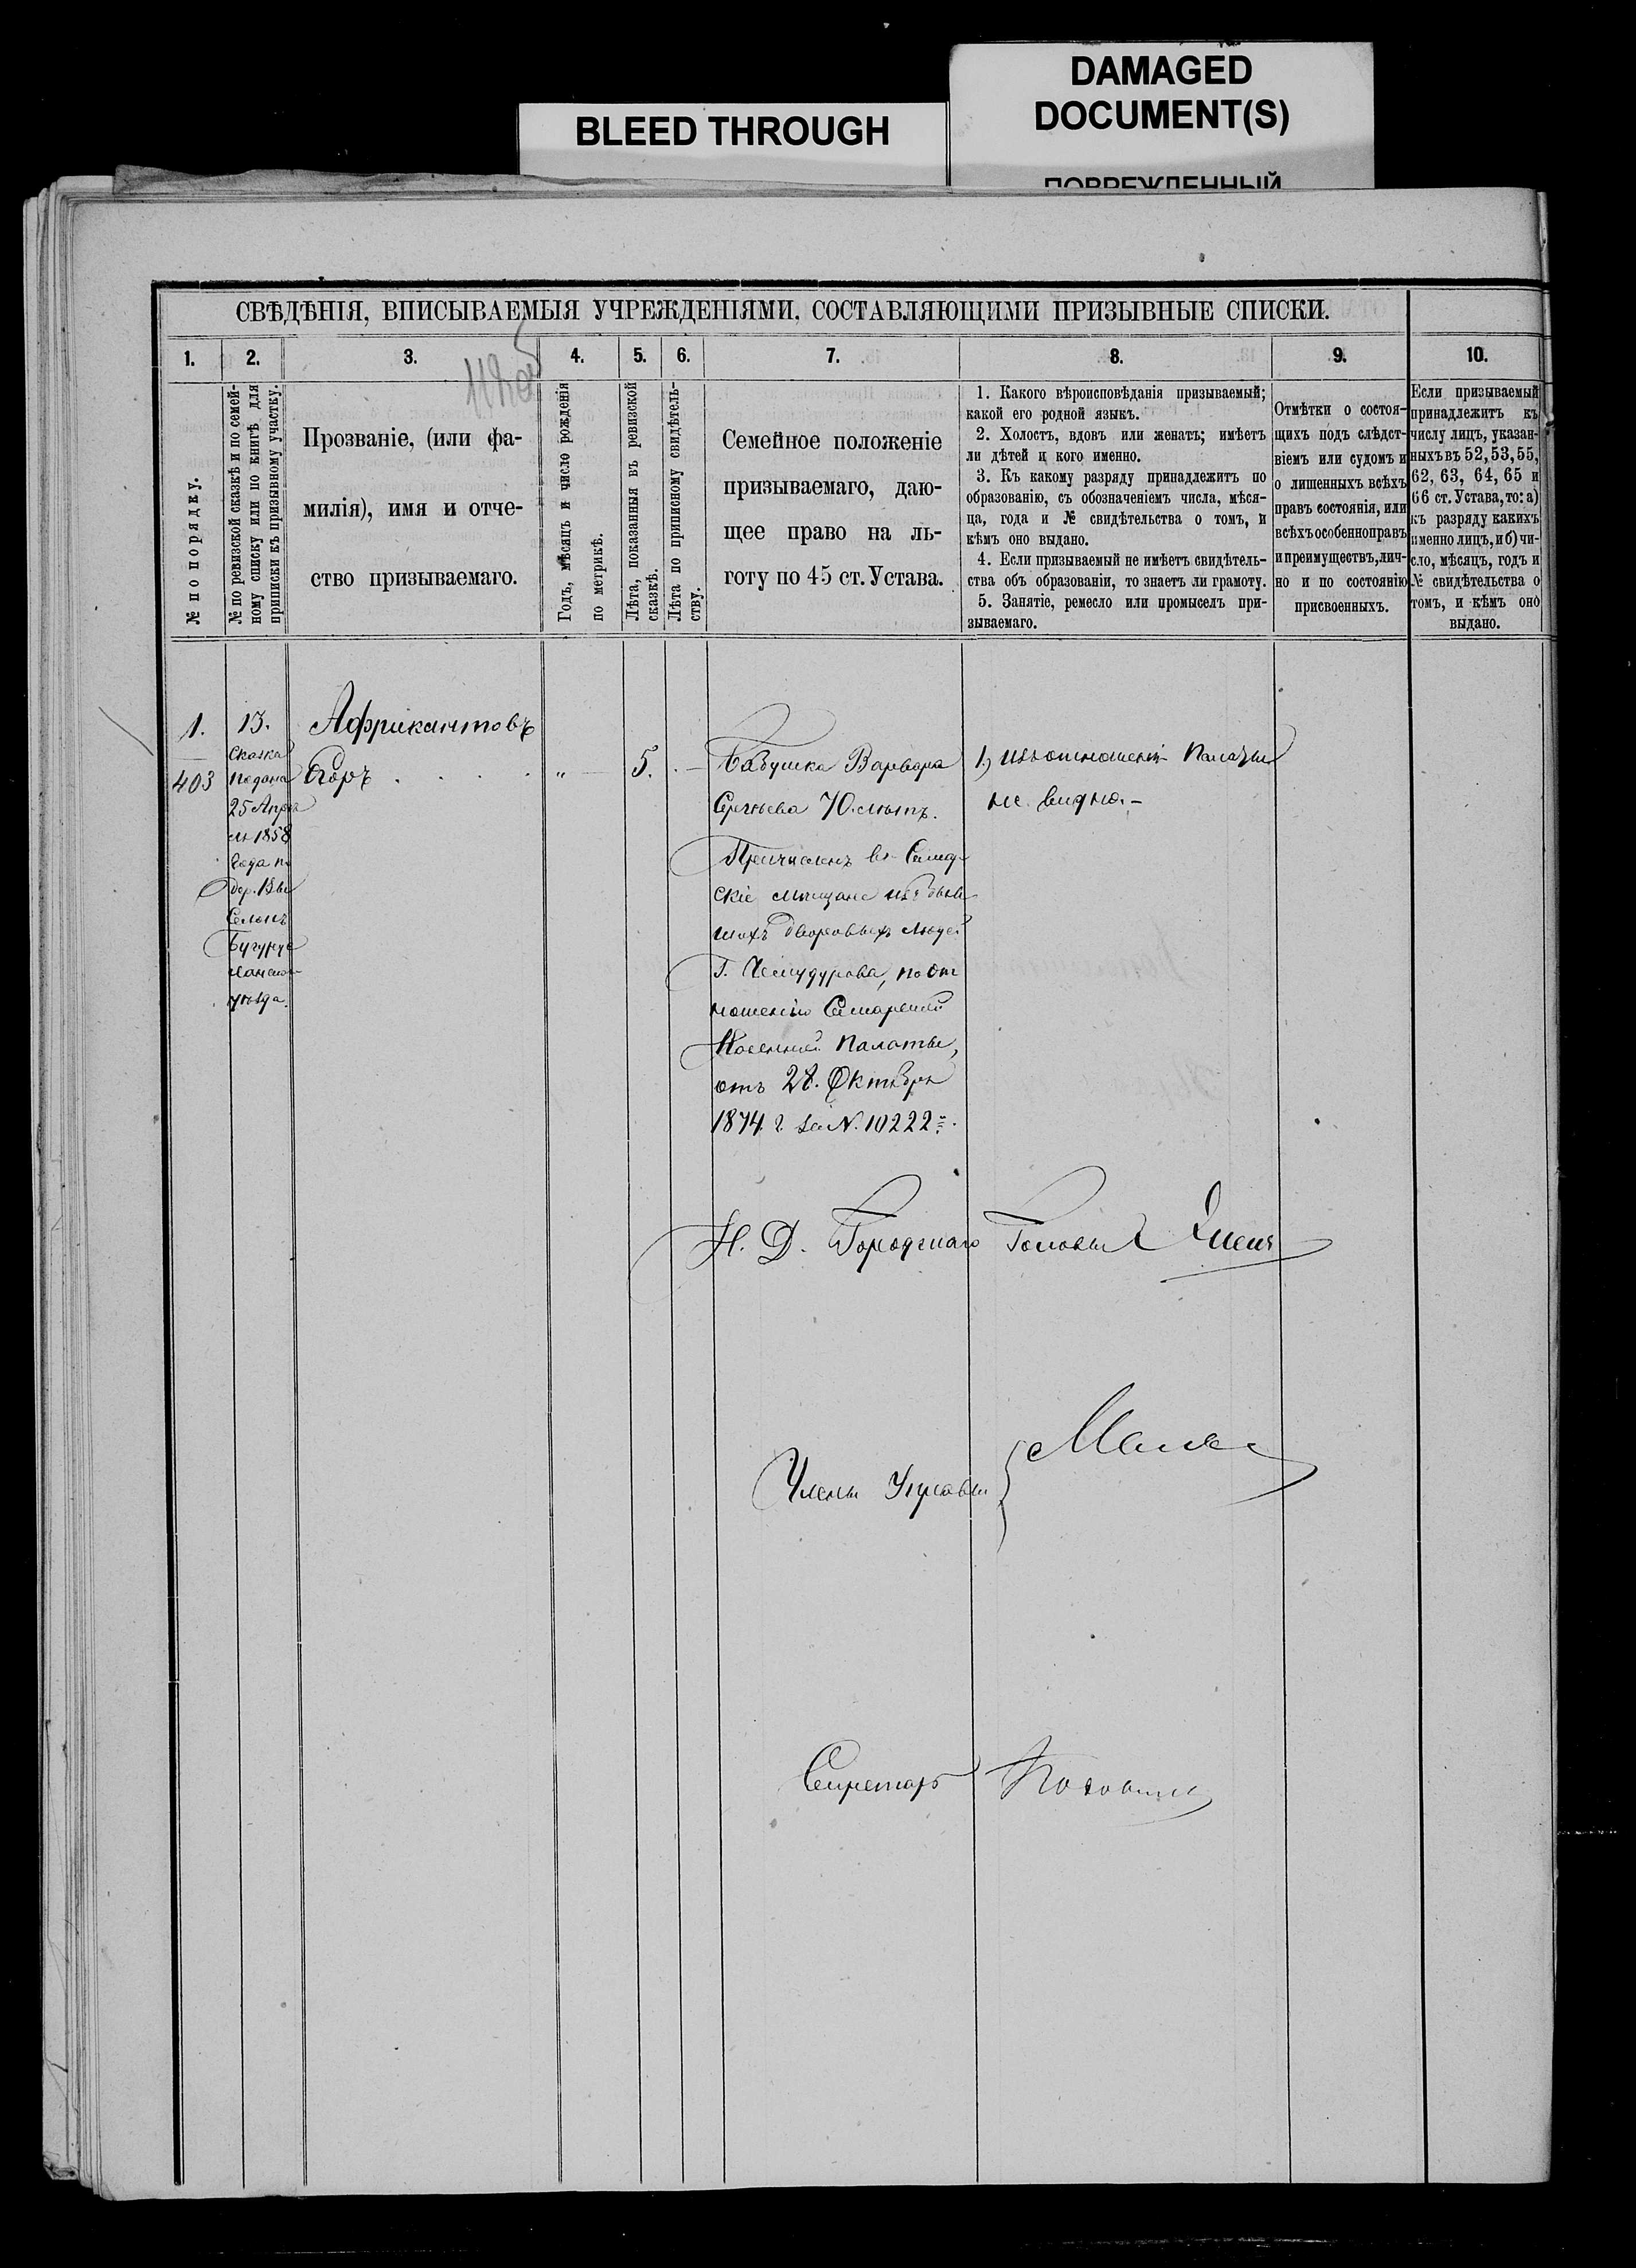 DAMAGED
DOCUMENT(S)
BLEED THROUGH
ПОВРЕЖДЕННЫЙ
СВѢДѢНІЯ, ВПИСЫВАЕМЫЯ УЧРЕЖДЕНІЯМИ, СОСТАВЛЯЮЩИМИ ПРИЗЫВНЫЕ СПИСКИ.
1. 2. 3. 4. 5. 6. 7. 8. 9. 10.
№ по порядку.
№ по ревизской сказкѣ и по семей-
ному списку или по книгѣ для
приписки къ призывному участку.
Прозваніе, (или фа-
милія), имя и отче-
ство призываемаго.
Годъ, мѣсяцъ и число рожденія
по метрикѣ.
Лѣта, показанныя въ ревизской
сказкѣ.
Лѣта по приписному свидѣтель-
ству.
Семейное положеніе
призываемаго, даю-
щее право на ль-
готу по 45 ст. Устава.
1. Какого вѣроисповѣданія призываемый;
какой его родной языкъ.
2. Холостъ, вдовъ или женатъ; имѣетъ
ли дѣтей и кого именно.
3. Къ какому разряду принадлежитъ по
образованію, съ обозначеніемъ числа, мѣся-
ца, года и № свидѣтельства о томъ, и
кѣмъ оно выдано.
4. Если призываемый не имѣетъ свидѣтель-
ства объ образованіи, то знаетъ ли грамоту.
5. Занятіе, ремесло или промыселъ при-
зываемаго.
Отмѣтки о состоя-
щихъ подъ слѣдст-
віемъ или судомъ и
о лишенныхъ всѣхъ
правъ состоянія, или
всѣхъ особенно правъ
и преимуществъ, лич-
но и по состоянію
присвоенныхъ.
Если призываемый
принадлежитъ къ
числу лицъ, указан-
ныхъ въ 52, 53, 55,
62, 63, 64, 65 и
66 ст. Устава, то: а)
къ разряду какихъ
именно лицъ, и б) чи-
сло, мѣсяцъ, годъ и
№ свидѣтельства о
томъ, и кѣмъ оно
выдано.
1.
403
13.
Сказка
подана
25 Апре
ля 1858
года по
дер. Вы
селкъ
Бугурус
ланскаго
уѣзда.
Африкантовъ
Егоръ . . . .
" —
5.
. —
Бабушка Варвара
Сергѣева 70. лѣтъ.
Причисленъ въ Самар
скіе мѣщане изъ быв
шихъ дворовыхъ людей
Г. Чемудурова, по от
ношенію Самарской
Казенной Палаты,
отъ 28. Октября
1874. г. за N. 10222.
1, изъ отношенія Палаты
не видно. –
И. Д. Городскаго Головы
Члены Управы
Секретарь